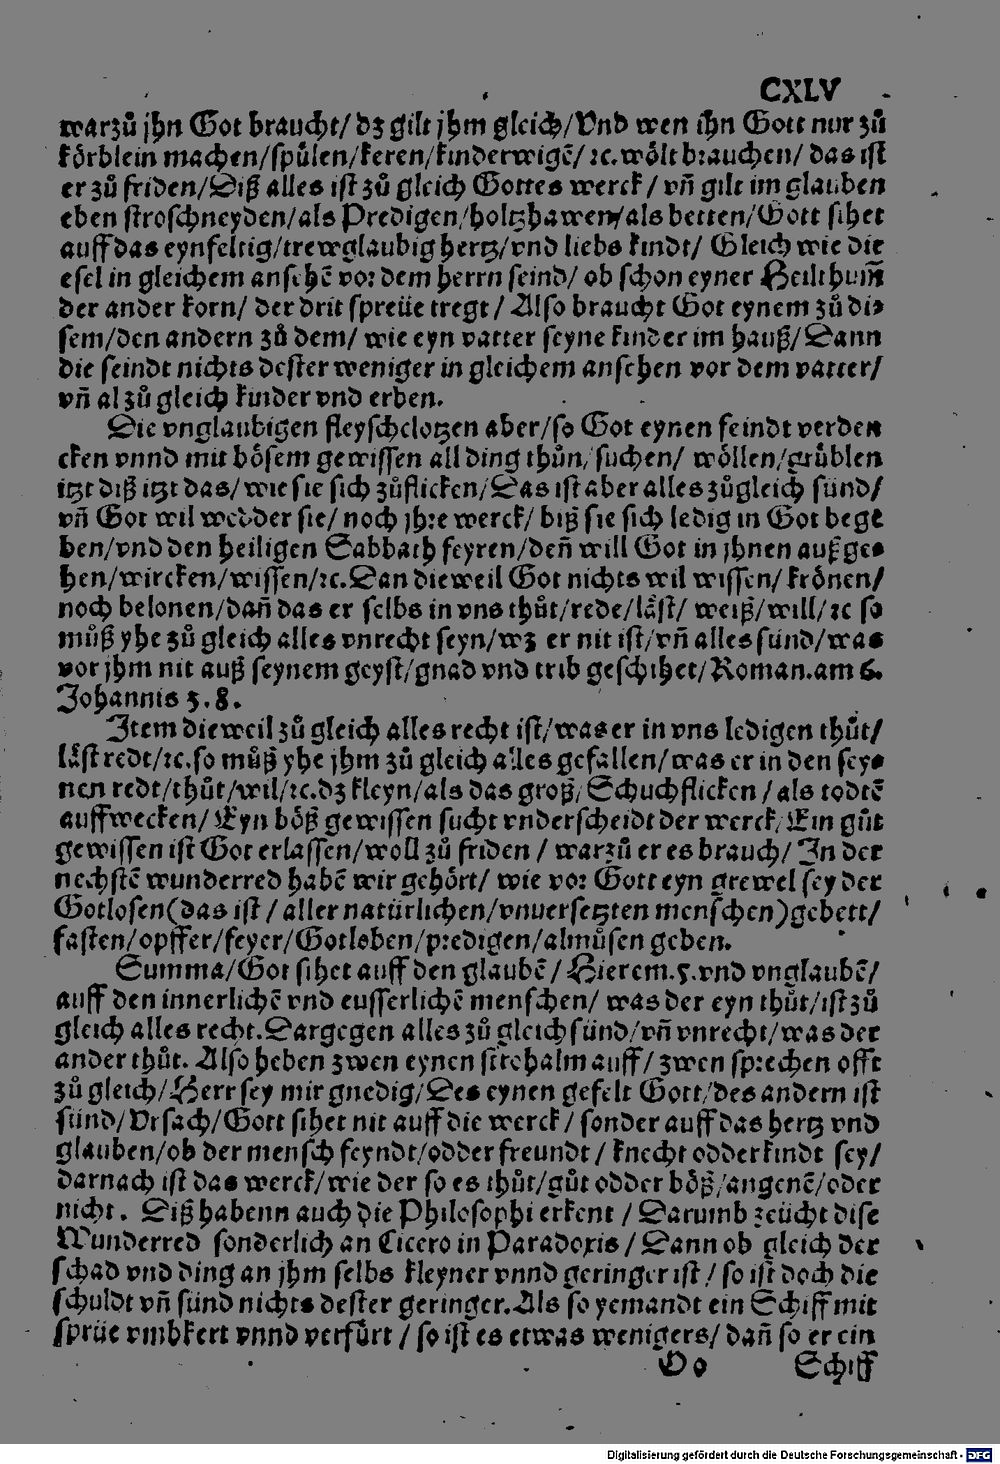 CXLV
warzů jhn Got braucht/ dz gilt jhm gleich/Vnd wen ihn Gott nur zů
körblein machen/spülen/keren/kinderwigẽ/ ⁊c.wölt brauchen/ das ist
er zů friden/Diß alles ist zů gleich Gottes werck/ vñ gilt im glauben
eben stroschneyden/als Predigen/holtzhawen/als betten/Gott sihet
auff das eynfeltig/trewglaubig hertz/vnd liebs kindt/ Gleich wie die
esel in gleichem ansehẽ vor dem herrn seind/ ob schon eyner Heilthum̃
der ander korn/ der drit spreüe tregt/ Also braucht Got eynem zů di⸗
sem/den andern zů dem/ wie eyn vatter seyne kinder im hauß/ Dann
die seindt nichts dester weniger in gleichem ansehen vor dem vatter/
vñ al zů gleich kinder vnd erben.
Die vnglaubigen fleyschclotzen aber/so Got eynen feindt verden
cken vnnd mit bösem gewissen all ding thůn/ suchen/ wöllen/grüblen
itzt diß itzt das/ wie sie sich zůflicken/Das ist aber alles zůgleich sünd/
vñ Got wil wedder sie/ noch jhre werck/ biß sie sich ledig in Got bege
ben/vnd den heiligen Sabbath feyren/deñ will Got in jhnen außge⸗
hen/wircken/wissen/⁊c.Dan dieweil Got nichts wil wissen/ krönen/
noch belonen/dañ das er selbs in vns thůt/rede/läst/ weiß/will/⁊c so
můß yhe zů gleich alles vnrecht seyn/wz er nit ist/vñ alles sünd/was
vor jhm nit auß seynem geyst/gnad vnd trib geschihet/Roman.am 6.
Johannis 3.8.
Item dieweil zů gleich alles recht ist/was er in vns ledigen thůt/
läst redt/⁊c.so můß yhe jhm zů gleich alles gefallen/was er in den sey⸗
nen redt/thůt/wil/⁊c.dz kleyn/als das groß/Schuchflicken/als todtẽ
auffwecken/ Eyn böß gewissen sucht vnderscheidt der werck/Ein gůt
gewissen ist Got erlassen/woll zů friden/ warzů er es brauch/ In der
nechstẽ wunderred habẽ wir gehört/ wie vor Gott eyn grewel sey der
Gotlosen(das ist/ aller natürlichen/vnuersetzten menschen)gebett/
fasten/opffer/feyer/Gotloben/predigen/almůsen geben.
Summa/Got sihet auff den glaubẽ/ Hierem.5.vnd vnglaubẽ/
auff den innerlichẽ vnd eusserlichẽ menschen/ was der eyn thůt/ist zů
gleich alles recht.Dargegen alles zů gleich sünd/vñ vnrecht/was der
ander thůt. Also heben zwen eynen strohalm auff/ zwen sprechen offt
zů gleich/Herr sey mir gnedig/Des eynen gefelt Gott/des andern ist
sünd/Vrsach/Gott sihet nit auff die werck/ sonder auff das hertz vnd
glauben/ob der mensch feyndt/odder freundt/ knecht odder kindt sey/
darnach ist das werck/wie der so es thůt/gůt odder böß/angenẽ/oder
nicht. Diß habenn auch die Philosophi erkent/ Darumb zeücht dise
Wunderred sonderlich an Cicero in Paradoxis/ Dann ob gleich der
schad vnd ding an jhm selbs kleyner vnnd geringer ist/ so ist doch die
schuldt vñ sünd nichts dester geringer.Als so yemandt ein Schiff mit
sprüe vmbkert vnnd verfůrt/ so ist es etwas wenigers/ dañ so er ein
Oo Schiff
Digitalisierung gefördert durch die Deutsche Forschungsgemeinschaft - DFG